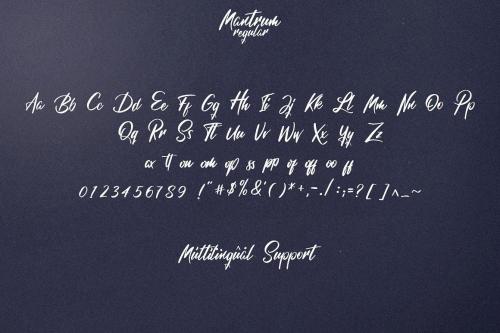 Mantrum
regular
Aa Bb Cc Dd Ee Ff Gg Hh Ii Jj Kk Ll Mm Nn Oo Pp
Qq Rr Ss Tt Uu Vv Ww Xx Yy Zz
ox tt on om op ss pp of off oo ff
0123456789 !"#$%&'()*+,-./:;=?[]^_~
Múltilingûàl Support